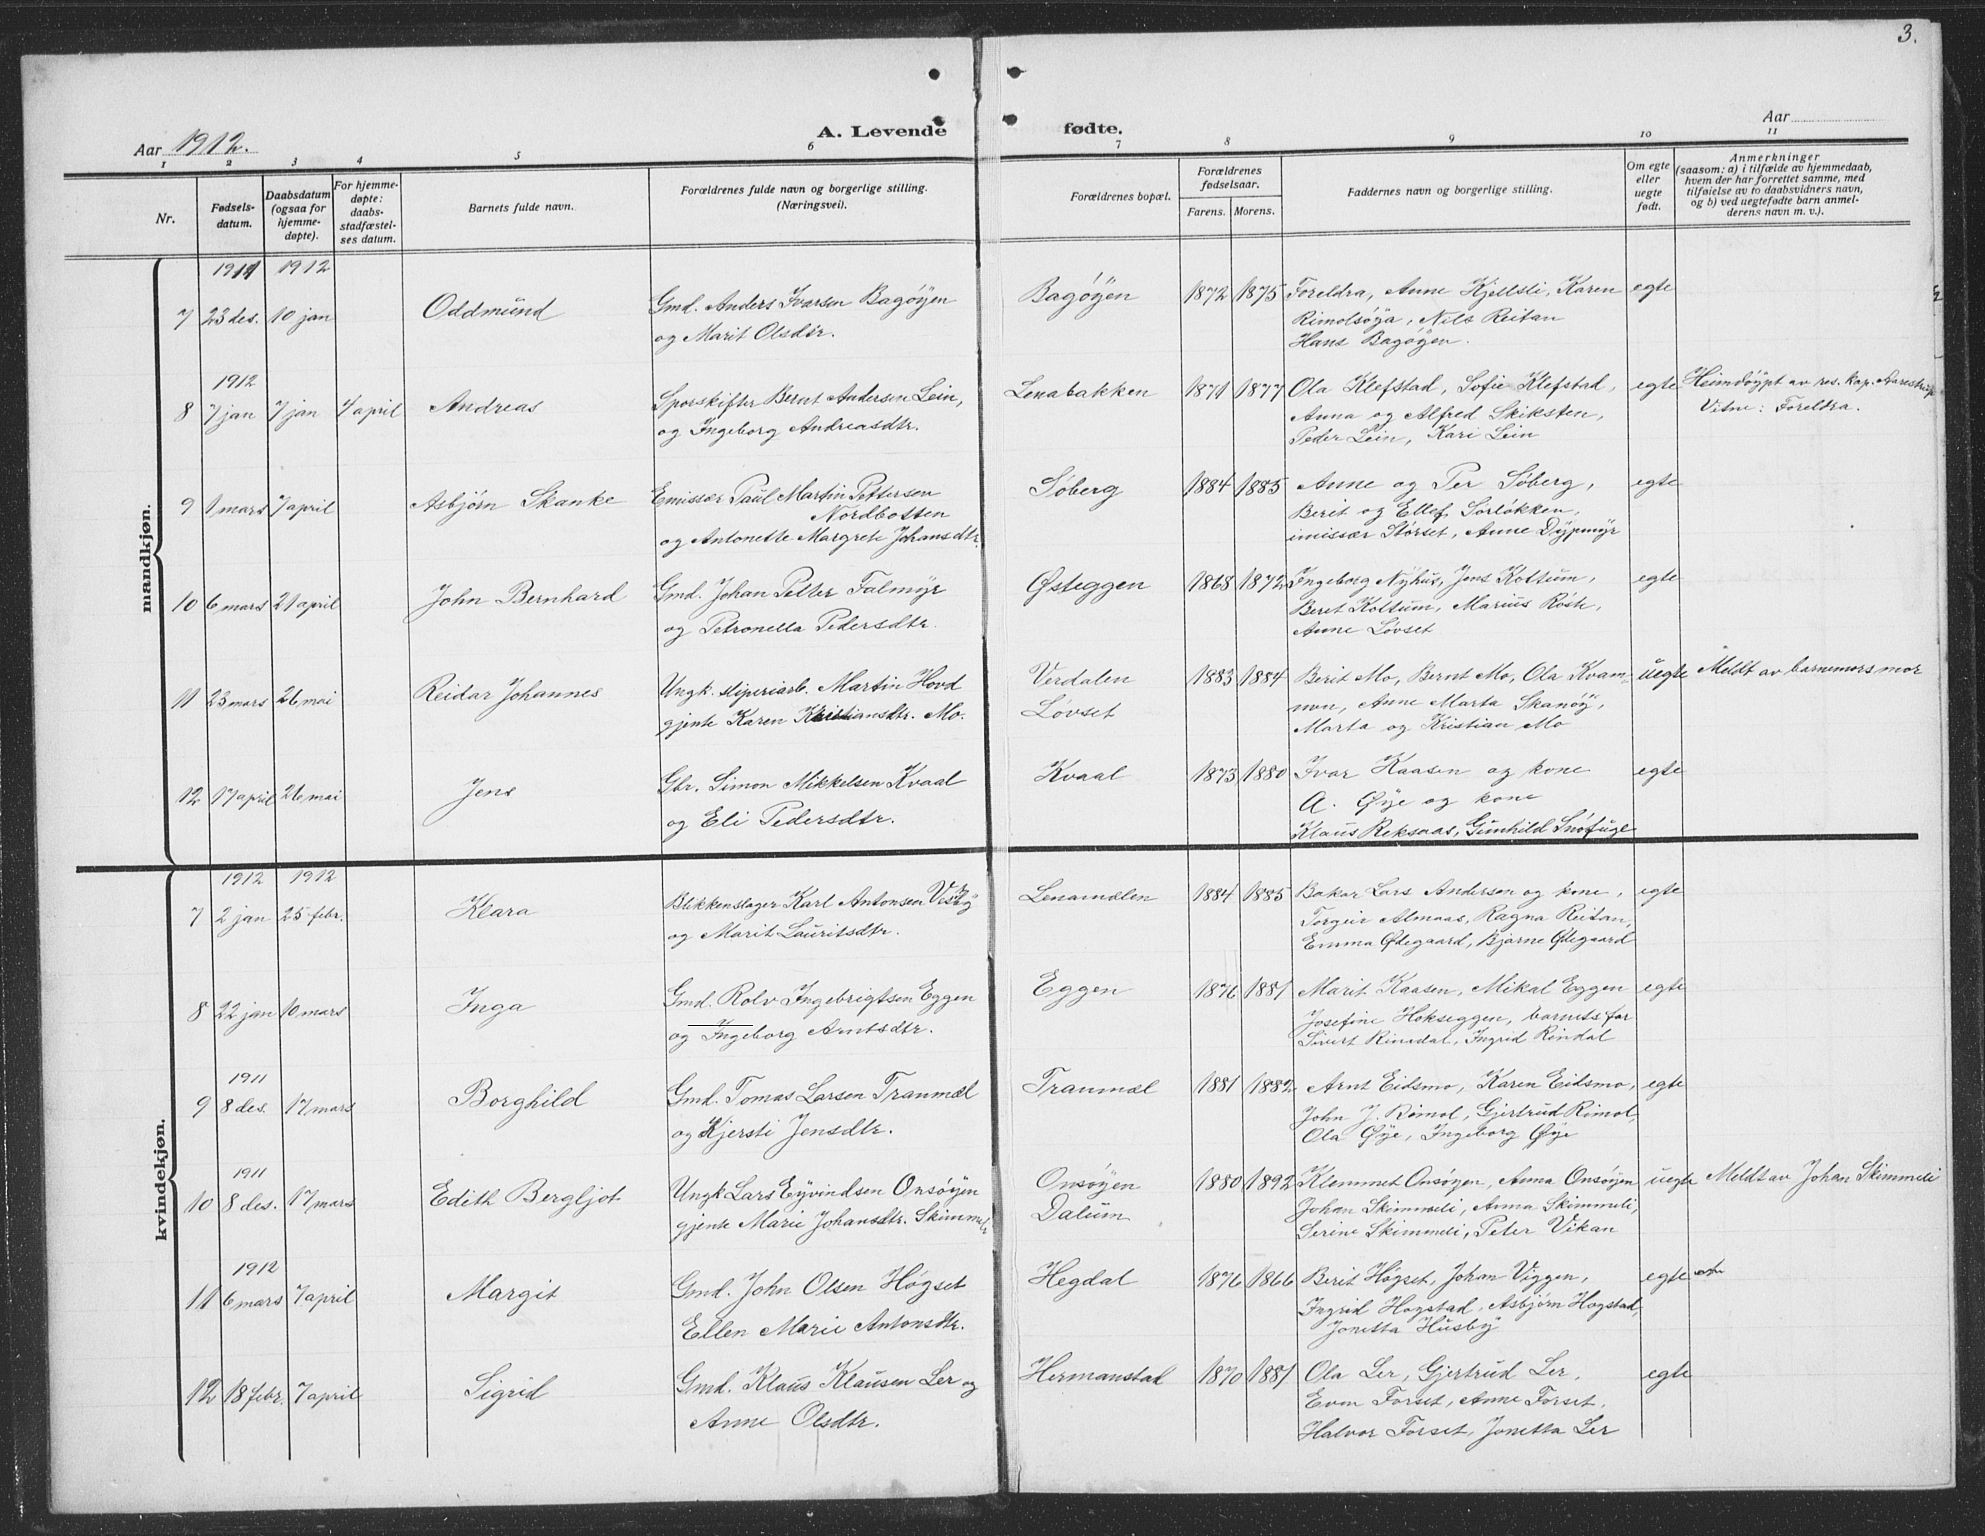 3.
Aar 1912.
A. Levende fødte.
Aar
1 2 3 4 5 6 7 8 9 10 11
Nr.
Fødsels-
datum.
Daabsdatum
(ogsaa for
hjemme-
døpte).
For hjemme-
døpte:
daabs-
stadfæstel-
ses datum.
Barnets fulde navn.
Forældrenes fulde navn og borgerlige stilling.
(Næringsvei).
Forældrenes bopæl.
Forældrenes
fødselsaar.
Farens. Morens.
Faddernes navn og borgerlige stilling.
Om egte
eller
uegte
født.
Anmerkninger
(saasom: a) i tilfælde av hjemmedaab,
hvem der har forrettet samme, med
tilføielse av to daabsvidners navn,
og b) ved uegtefødte barn anmel-
derens navn m. v.).
mandkjøn.
1911 1912
7 23 des. 10 jan Oddmund Gmd. Anders Ivarsen Bagøyen Bagøyen 1872 1875 Foreldra, Anne Kjellsli, Karen egte
og Marit Olsdtr. Rimolsøya, Nils Reitan
Hans Bagøyen.
1912
8 7 jan 7 jan 7 april Andreas Sporskifter Bernt Andersen Lein, Lenabakken 1871 1877 Ola Klefstad, Sofie Klefstad, egte Heimdøypt av res. kap. Aarestrup
og Ingeborg Andreasdtr. Anna og Alfred Skiksten, Vitne: Foreldra.
Peder Lein, Kari Lein
9 1 mars 7 april Asbjørn Skanke Emissær Paul Martin Pettersen Søberg 1884 1885 Anne og Per Søberg, egte
Nordbotten Berit og Ellef Sørløkken,
og Antonette Margrete Johansdtr. emissær Størset, Anne Dypmyr
10 6 mars 21 april John Bernhard Gmd. Johan Petter Falmyr Østeggen 1868 1872 Ingeborg Nyhus, Jens Kottum, egte
og Petronella Pedersdtr. Berit Kottum, Marius Røste,
Anne Løvset
11 23 mars 26 mai Reidar Johannes Ungk. sliperiarb. Martin Hovd Verdalen 1883 1884 Berit Mo, Bernt Mo, Ola Kvam- uegte Meldt av barnemors mor
gjente Karen Kristiansdtr. Mo. Løvset Anne Marta Skanøy,
Marta og Kristian Mo
12 17 april 26 mai Jens Gbr. Simon Mikkelsen Kvaal Kvaal 1873 1880 Ivar Kaasen og kone egte
og Eli Pedersdtr. A. Øye og kone
Klaus Reksaas, Gunhild Snøfuge
kvindekjøn.
1912 1912
7 2 jan 25 febr. Klara Blikkenslager Karl Antonsen Lenamælen 1884 1885 Bakar Lars Andersen og kone, egte
og Marit Lauritsdtr. Torgeir Almaas, Ragna Reitan,
Emma Ødegaard, Bjarne Ødegaard
8 22 jan 10 mars Inga Gmd. Rolv Ingebrigtsen Eggen Eggen 1876 1881 Marit Kaasen, Mikal Eggen egte
og Ingeborg Arntsdtr. Josefine Hokseggen, barnets far
Sivert Rindal, Ingrid Rindal
1911
9 8 des. 17 mars Borghild Gmd. Tomas Larsen Tranmæl Tranmæl 1881 1882 Arnt Eidsmo, Karen Eidsmo, egte
og Kjersti Jensdtr. John J. Rimol, Gjertrud Rimol,
Ola Øye, Ingeborg Øye
1911
10 8 des. 17 mars Edith Bergljot Ungk Lars Eyvindsen Onsøyen Onsøyen 1880 1892 Klemmet Onsøyen, Anna Onsøyen uegte Meldt av Johan Skimmeli
gjente Marie Johansdtr. Skimmeli Dalum Johan Skimmeli, Anna Skimmeli,
Serine Skimmeli, Peter Vikan
1912
11 6 mars 7 april Margit Gmd. John Olsen Høgset Hegdal 1876 1866 Berit Høgset, Johan Viggen, egte
Ellen Marie Antonsdtr. Ingrid Hogstad, Asbjørn Hogstad,
Jonetta Husby
12 18 febr. 7 april Sigrid Gmd. Klaus Klausen Ler og Hermanstad 1870 1881 Ola Ler, Gjertrud Ler, egte
Anne Olsdtr. Even Forset, Anne Forset,
Halvor Forset, Jonetta Ler